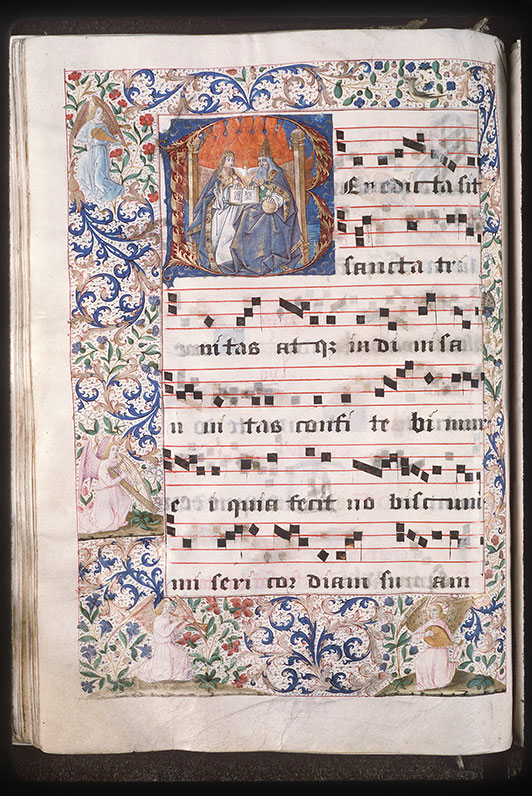 Benedicta sit
sancta tri
nitas at qz indi uisa
u ni tas confi te bimur
e i quia fecit no biscum
mi seri cor diam su am